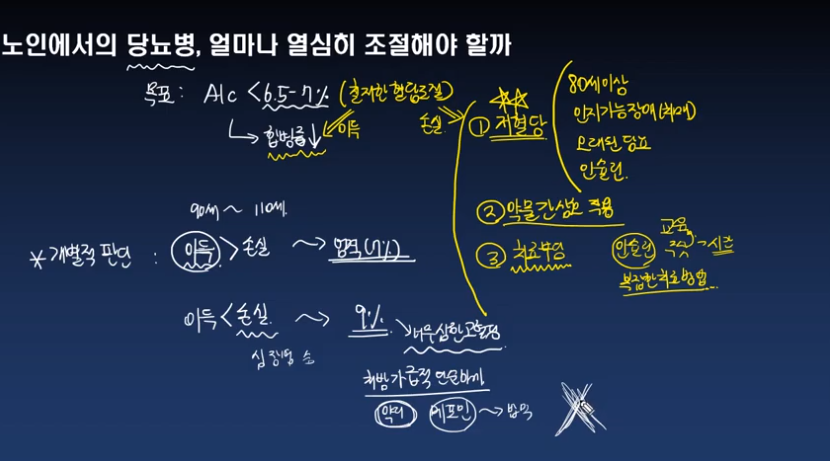 노인에서의 당뇨병, 얼마나 열심히 조절해야 할까
목표 : A1c < 6.5-7% (철저한 혈당조절)
합병증↓ 이득
손실
① 저혈당
80세이상
인지기능장애(치매)
오래된 당뇨
인슐린.
② 약물간 상호작용
③ 치료부담
인슐린 교육 시간
복잡한 치료방법
90세 ~ 110세.
* 개별적 판단 : 이득 > 손실 → 엄격(7%)
이득 < 손실 → 9% 너무 심한 고혈당
처방 가급적 단순하게